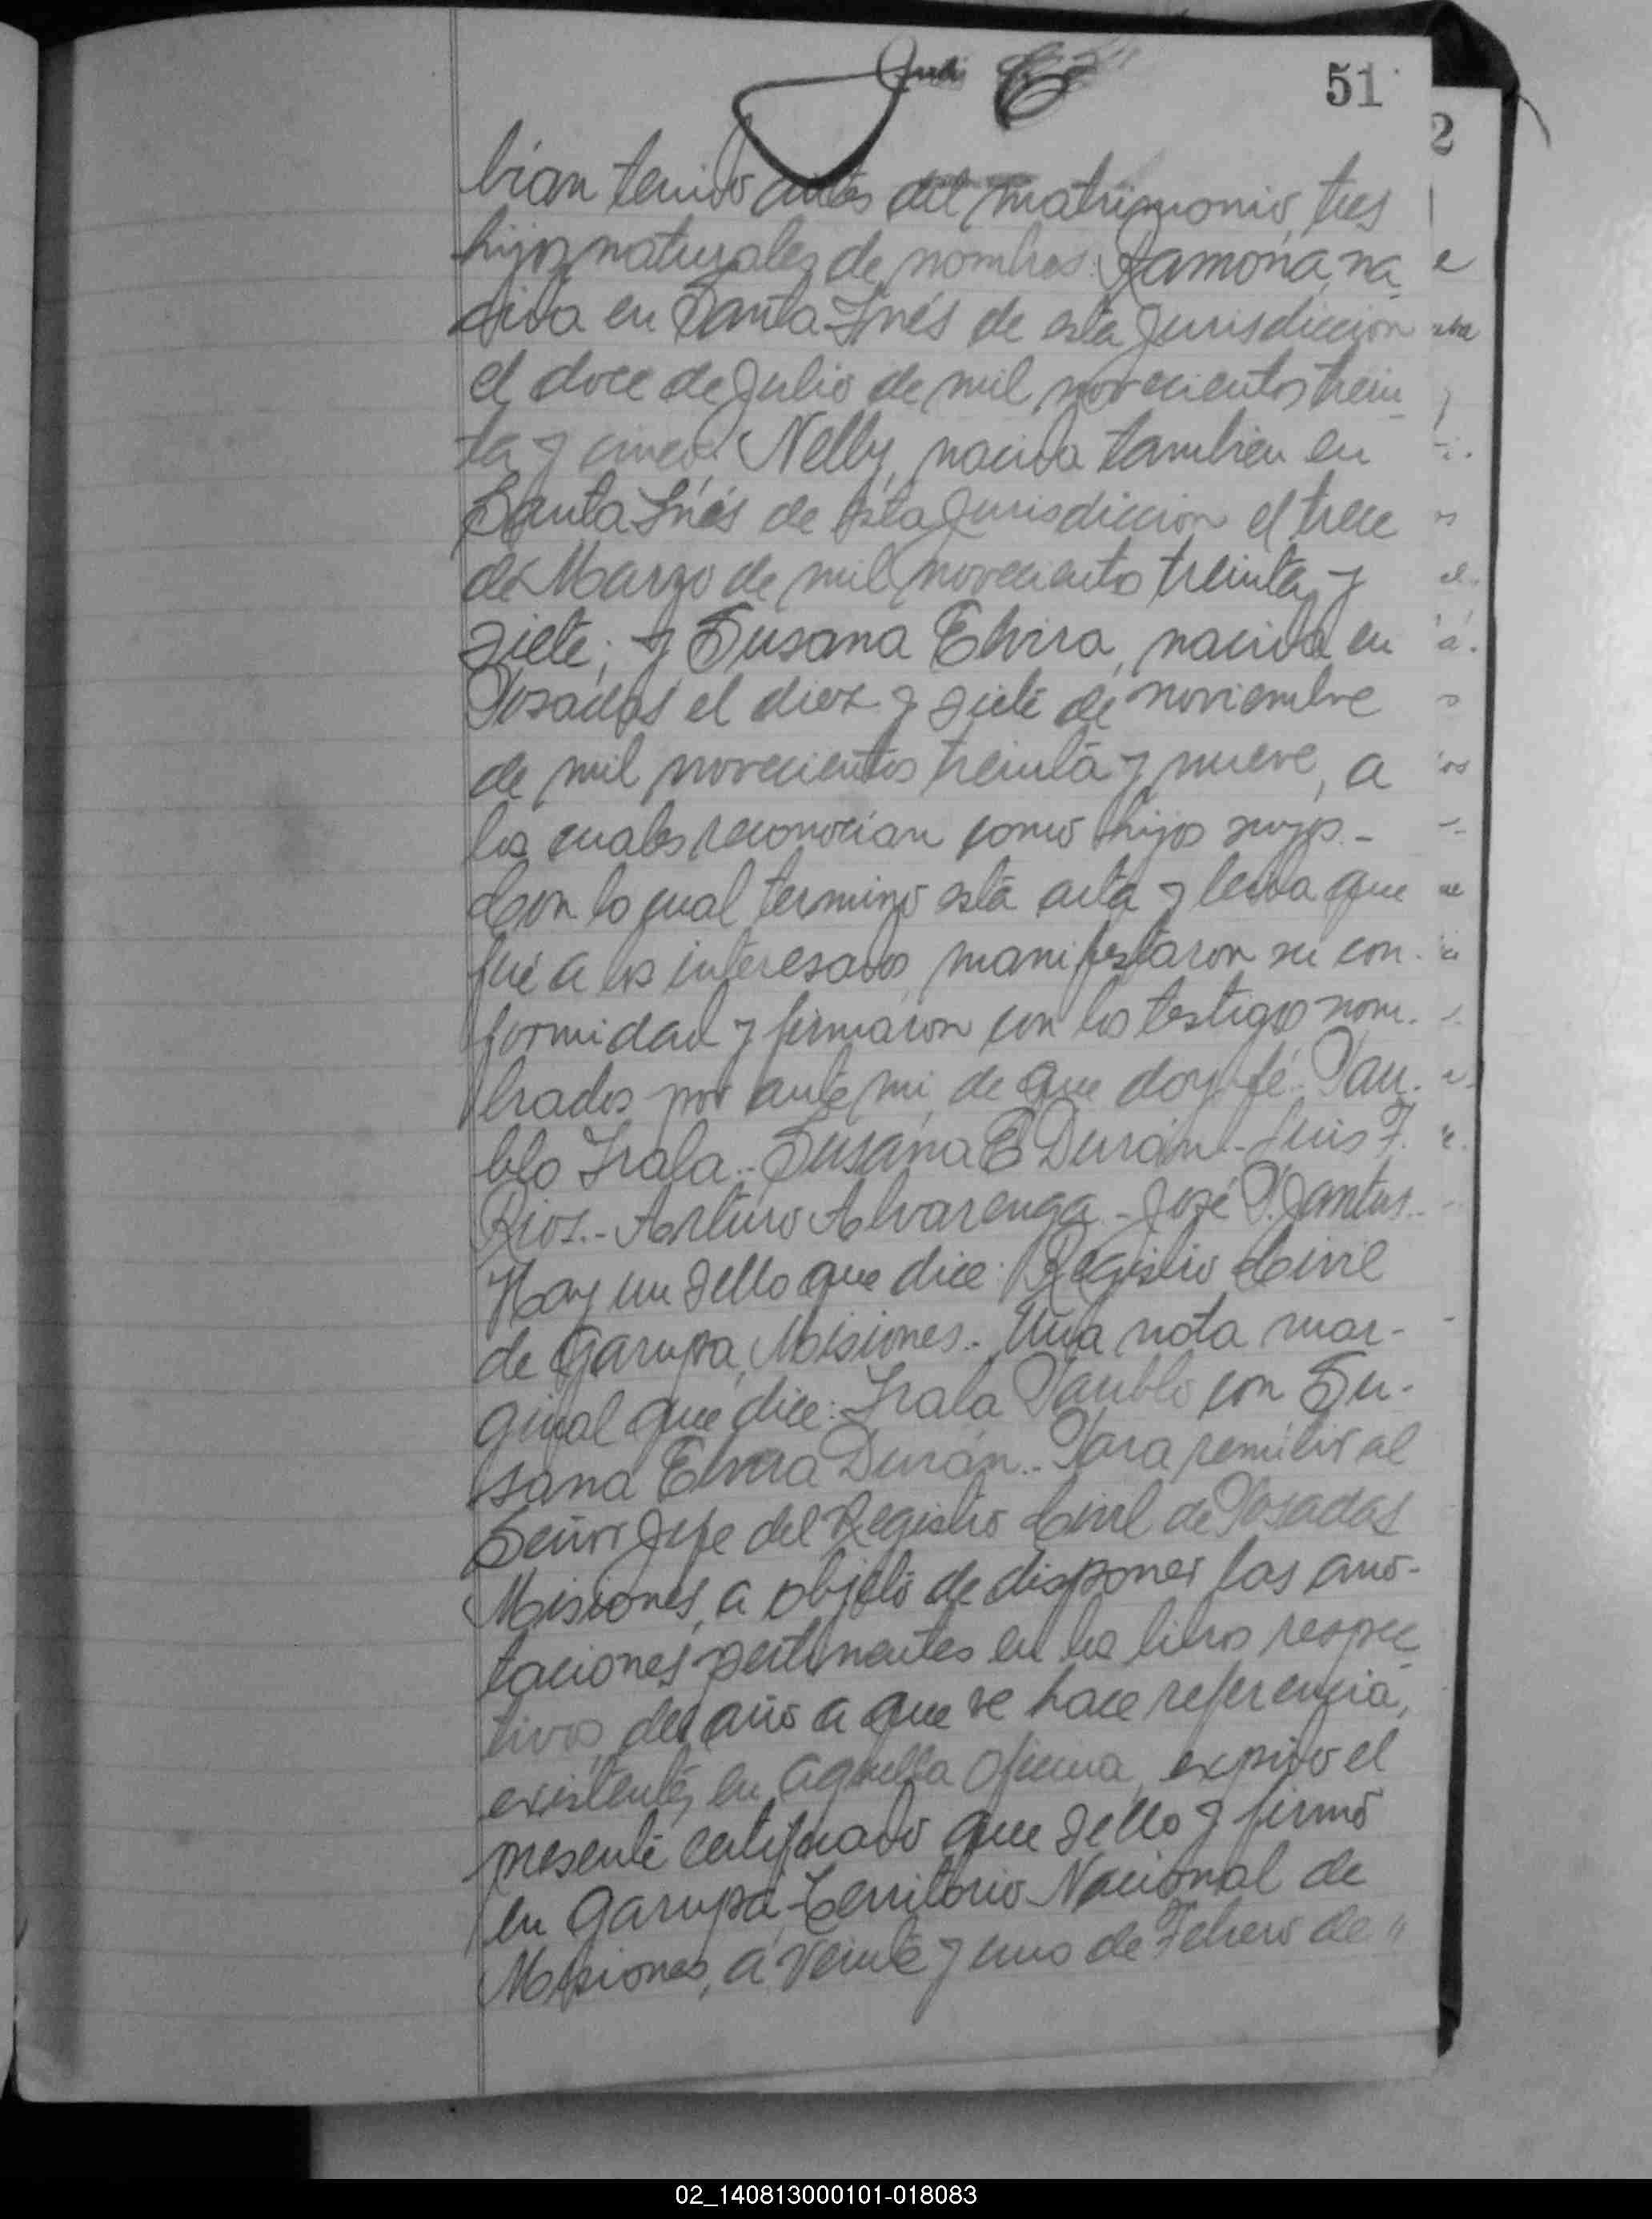 51
2
bian tenido antes del matrimonio, tres
hijos naturales de nombres: Ramona, na-
cida en Santa Inés de esta Jurisdiccion
el doce de Julio de mil novecientos trein-
ta y cinco; Nelly, nacida tambien en
Santa Inés de esta Jurisdiccion el trece
de Marzo de mil novecientos treinta y
siete; y Susana Elvira, nacida en
Posadas el diez y siete de noviembre
de mil novecientos treinta y nueve, a
los cuales reconocian como hijos suyos.-
Con lo cual termino esta acta y leida que
fué a los interesados, manifestaron su con-
formidad y firmaron con los testigos nom-
brados por ante mi, de que doy fé. Pau-
blo Irala.- Susana E Durán.- Luis F.
Rios.- Arturo Alvarenga.- José P. Jantus.-
Hay un sello que dice: Registro Civil
de Garupa, Misiones.- Una nota mar-
ginal que dice: Irala Paublo con Su-
sana Elvira Durán.- Para remitir al
Señor Jefe del Registro Civil de Posadas
Misiones, a objeto de disponer las ano-
taciones pertinentes en los libros respec-
tivos del año a que se hace referencia,
existentes en aquella oficina, expido el
presente certificado que sello y firmo
en Garupa-Territorio Nacional de
Misiones, a veinte y uno de Febrero de "
02_140813000101-018083